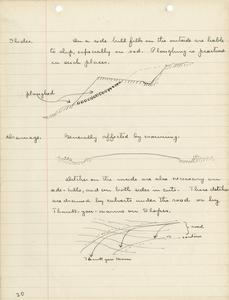 Slides. On a side hill fills on the outside are liable
to slip, especially on sod. Ploughing is practised
in such places.
ploughed
Drainage. Generally affected by crowning.
Ditches on the inside are also necessary on
side-hills, and on both sides in cuts. These ditches
are drained by culverts under the road or by
Thank-you-marms on slopes.
road
Thank you marms
20